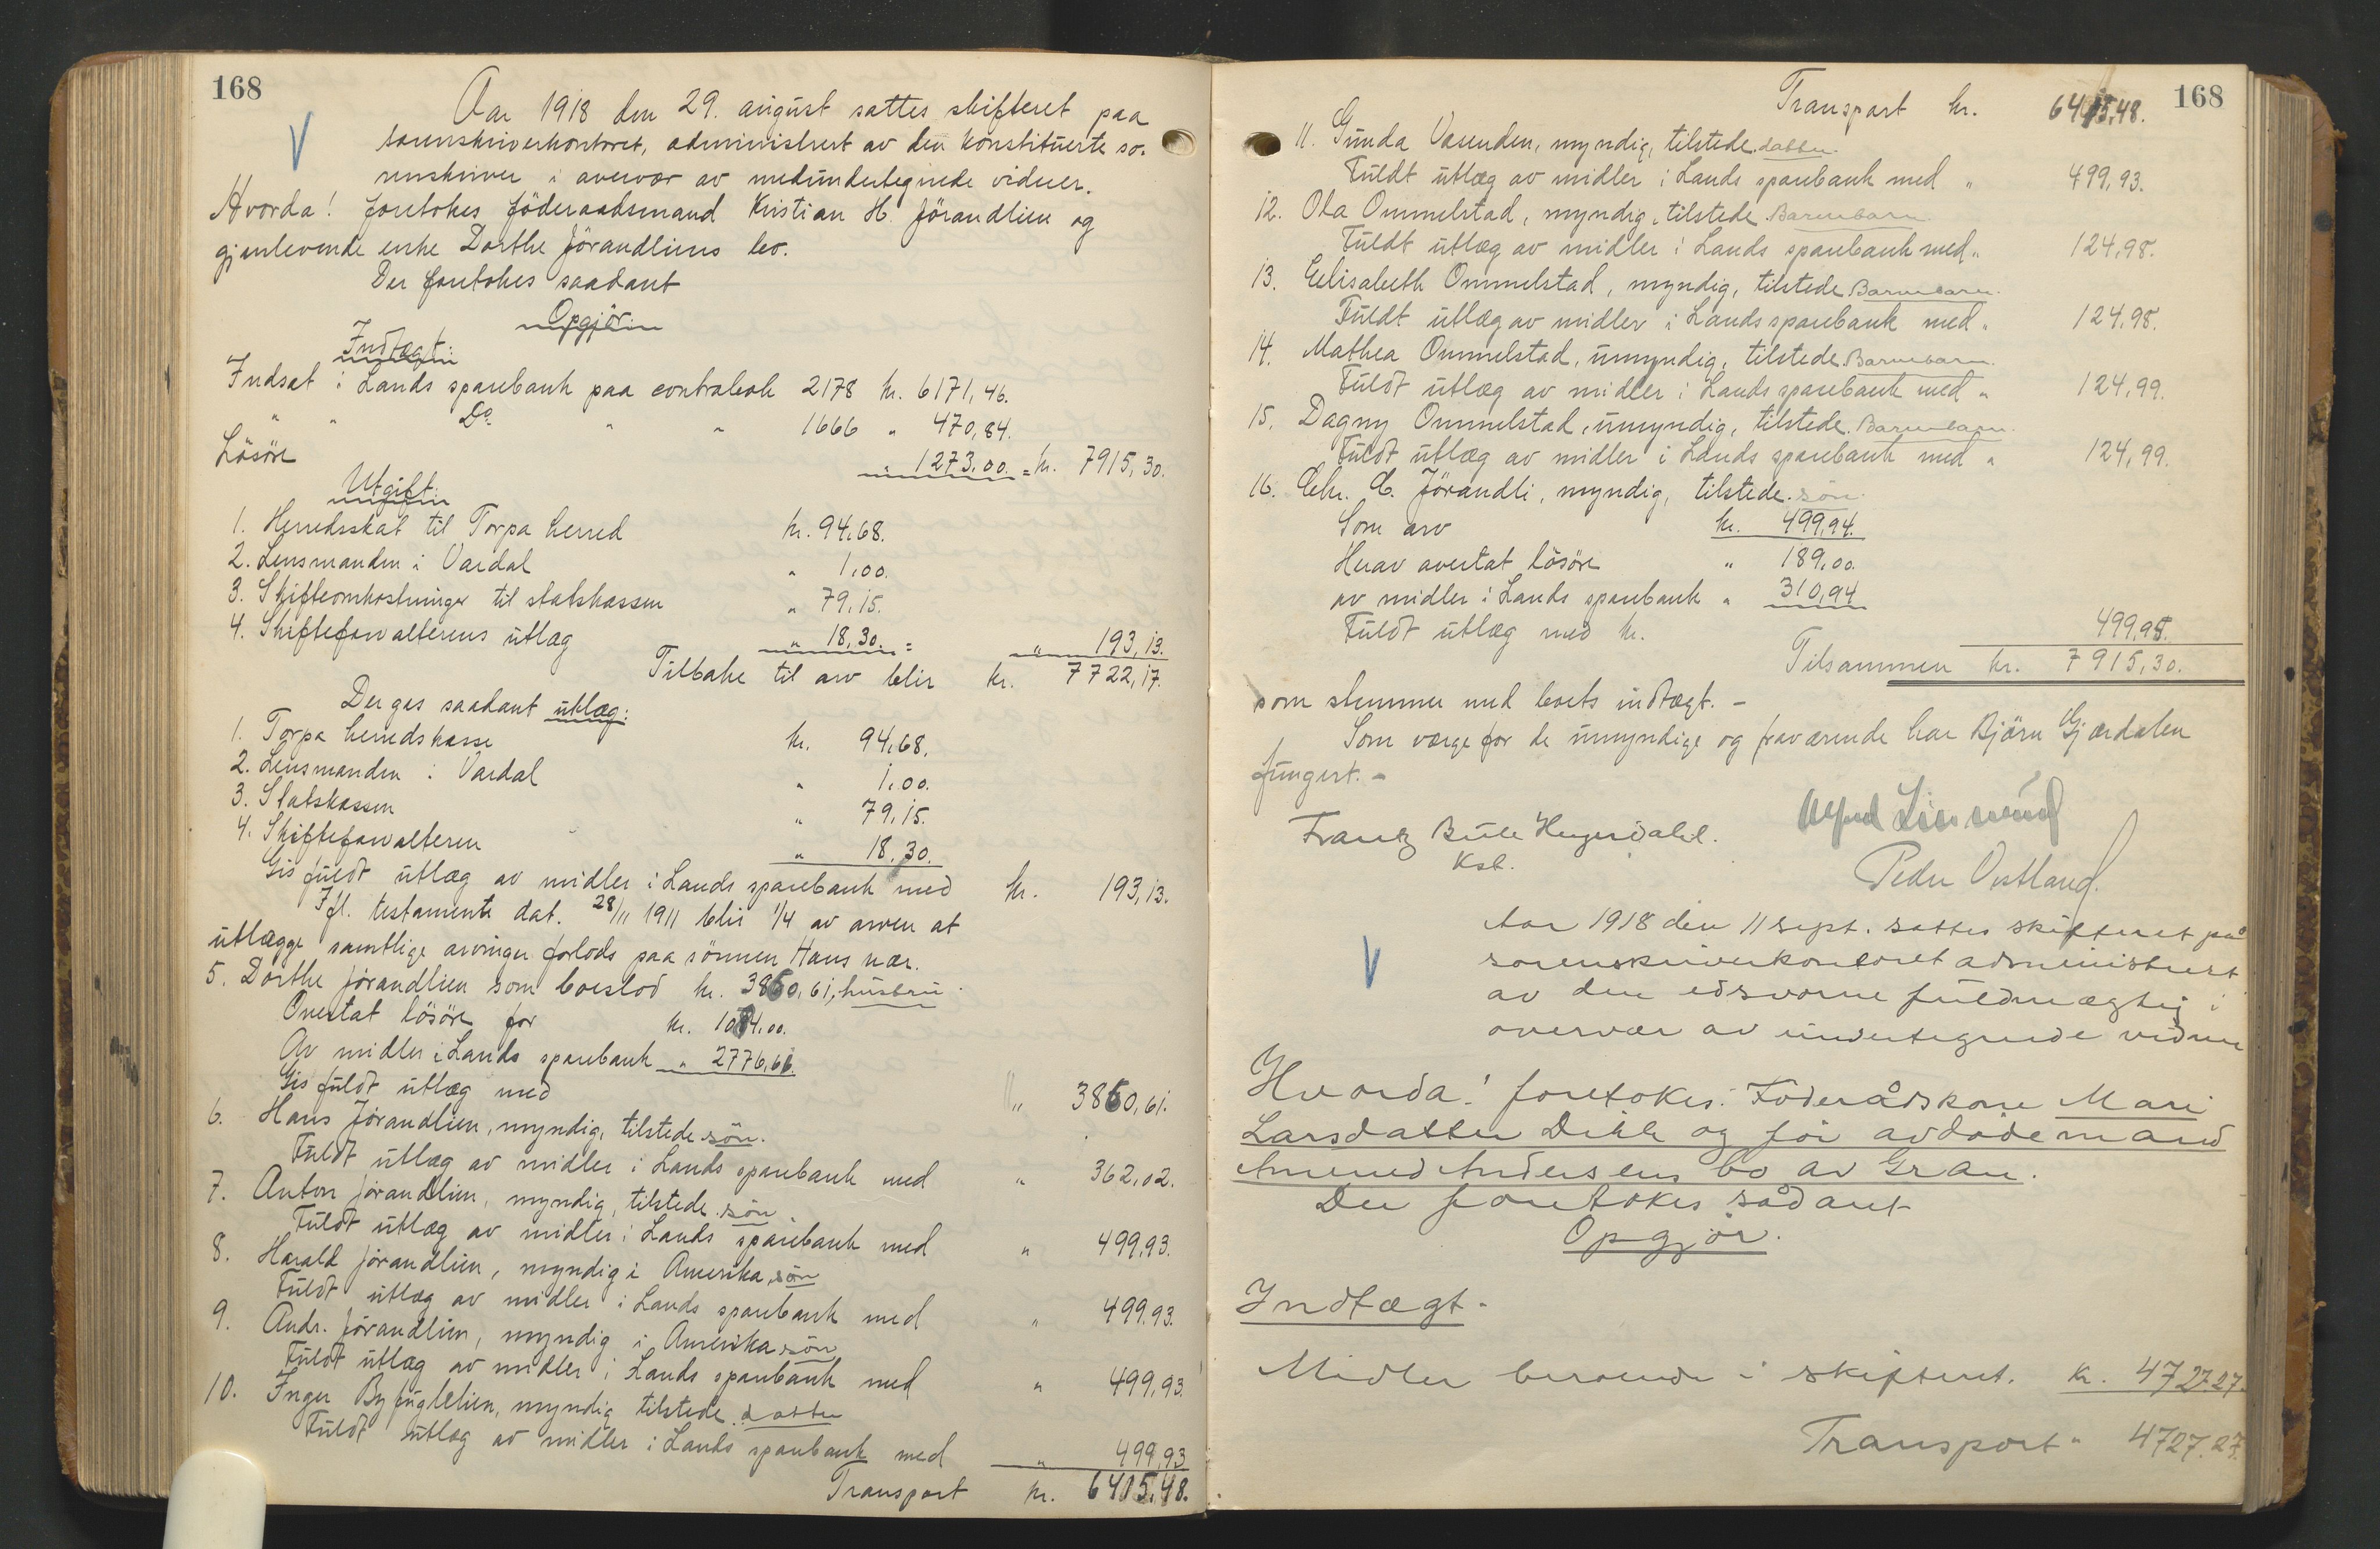 168
Aar 1918 den 29. august sattes skifteret paa
sorenskriverkontoret, administrert av den konstituerte so-
renskriver i overvær av medundertegnede vidner.
Hvorda! foretokes föderaadsmand Kristian H. Jörandlien og
gjenlevende enke Dorthe Jörandliens bo.
Der foretokes saadant
Opgjör:
Indtægt:
Indsat i Lands sparebank paa contrabok 2178 kr. 6171,46.
" " Do " " 1666 " 470,84.
Lösöre " 1273.00. = kr. 7915,30.
Utgift:
1. Herredsskat til Torpa herred kr. 94,68.
2. Lensmanden i Vardal " 1,00.
3. Skifteomkostninger til statskassen " 79,15.
4. Skifteforvalterens utlæg " 18,30. = " 193,13.
Tilbake til arv blir kr. 7722,17.
Der ges saadant utlæg:
1. Torpa herredskasse kr. 94,68.
2. Lensmanden i Vardal " 1,00.
3. Statskassen " 79,15.
4. Skifteforvalteren " 18,30.
Gis fuldt utlæg av midler i Lands sparebank med kr. 193,13.
Ifl. testamente dat. 28/11 1911 blir 1/4 av arven at
utlægge samtlige arvinger forlods paa sönnen Hans nær.
5. Dorthe Jörandlien som boeslod kr. 3860,61, hustru
Overtat lösöre for kr. 1084.00.
Av midler i Lands sparebank " 2776,61.
Gis fuldt utlæg med " 3860,61.
6. Hans Jörandlien, myndig, tilstede sön.
Fuldt utlæg av midler i Lands sparebank med " 362,02.
7. Anton Jörandlien, myndig, tilstede sön
Fuldt utlæg av midler i Lands sparebank med " 499,93.
8. Harald Jörandlien, myndig i Amerika, sön
Fuldt utlæg av midler i Lands sparebank med " 499,93.
9. Andr. Jörandlien, myndig i Amerika sön
Fuldt utlæg av midler i Lands sparebank med " 499,93.
10. Inger Byfuglelien, myndig tilstede datter
Fuldt utlæg av midler i Lands sparebank med " 499,93
Transport kr. 6415,48.
168
Transport kr. 6415,48.
11. Gunda Vasenden, myndig, tilstede. datter.
Fuldt utlæg av midler i Lands sparebank med " 499,93.
12. Ola Ommelstad, myndig, tilstede Barnebarn.
Fuldt utlæg av midler i Lands sparebank med " 124,98.
13. Elisabeth Ommelstad, myndig, tilstede Barnebarn.
Fuldt utlæg av midler i Lands sparebank med " 124,98.
14. Mathea Ommelstad, umyndig, tilstede Barnebarn.
Fuldt utlæg av midler i Lands sparebank med " 124,99.
15. Dagny Ommelstad, umyndig, tilstede. Barnebarn.
Fuldt utlæg av midler i Lands sparebank med " 124,99.
16. Chr. Jörandli, myndig, tilstede. sön.
Som arv kr. 499,94.
Herav overtat lösöre " 189,00.
av midler i Lands sparebank " 310,94
Fuldt utlæg med kr. 499,94.
Tilsammen kr. 7915,30.
som stemmer med boets indtægt. -
Som værge for de umyndige og fraværende har Björn Gjærdalen
fungert. -
Frantz Bull Hegerdahl.
Kst.
Peder Østland.
Aar 1918 den 11 sept. sattes skifteret på
sorenskriverkontoret administrert
av den edsvorne fuldmægtig i
overvær av undertegnede vidner
Hvorda! foretokes: Föderådskone Mari
Larsdatter Dihle og før avdøde mand
Amund Andersens bo av Gran.
Der foretokes sådant
Opgjør.
Indtægt.
Midler beroende i skifteret. kr. 4727.27.
Transport " 4727.27.